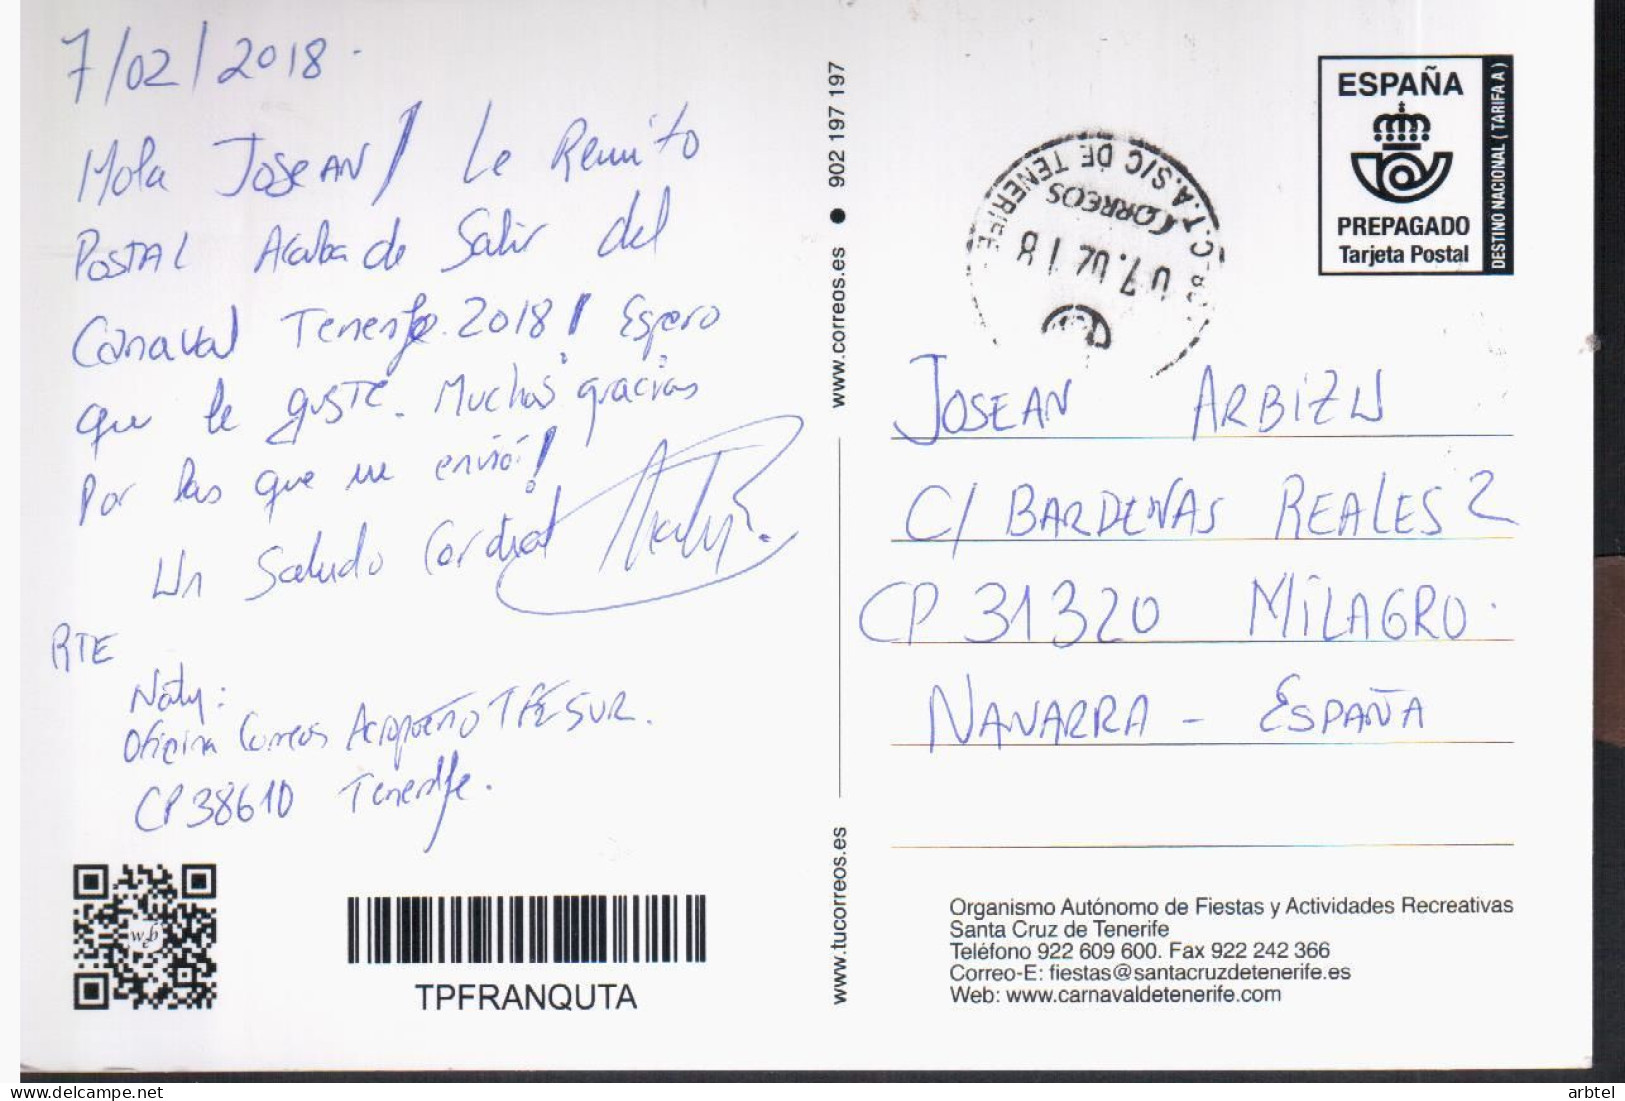 7/02/2018.
Hola JOSEAN! Le Remito
POSTAL Acaba de Salir del
Carnaval Tenerife. 2018! Espero
que le guste. Muchas gracias
Por las que me envió!
Un Saludo Cordial
RTE
Naty:
Oficina Correos Aeropuerto TFE SUR.
CP 38610 Tenerife.
web
TPFRANQUTA
902 197 197
www.correos.es
www.tucorreos.es
C.T.A. S/C DE TENERIFE
CORREOS
07.02 18
ESPAÑA
PREPAGADO
Tarjeta Postal
DESTINO NACIONAL ( TARIFA A )
JOSEAN ARBIZU
C/ BARDENAS REALES 2
CP 31320 MILAGRO.
NAVARRA - ESPAÑA
Organismo Autónomo de Fiestas y Actividades Recreativas
Santa Cruz de Tenerife
Teléfono 922 609 600. Fax 922 242 366
Correo-E: fiestas@santacruzdetenerife.es
Web: www.carnavaldetenerife.com
arbtel